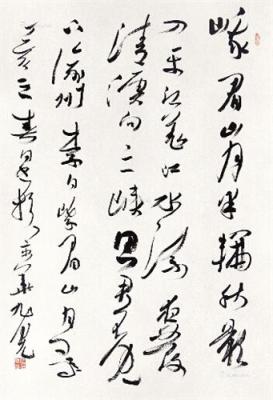 峨眉山月半輪秋影
入平羌江水流夜發
清溪向三峽思君不見
下渝州 李白峨眉山月歌
亥之春